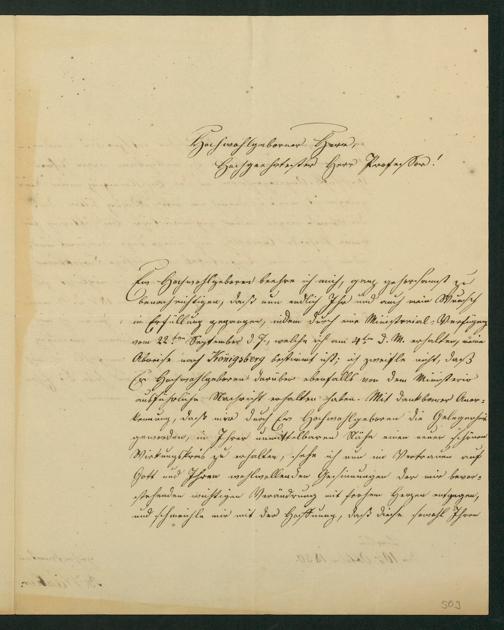 Hochwohlgeborner Herr,
Hochgeehrtester Herr Professor!
Ew. Hochwohlgeboren beehre ich mich, ganz gehorsamst zu
benachrichtigen, daß nun endlich Ihr und auch mein Wunsch
in Erfüllung gegangen, indem durch eine Ministerial-Verfügung
vom 22ten September d. J., welche ich am 4ten d. M. erhalten, meine
Abreise nach Königsberg bestimmt ist; ich zweifle nicht, daß
Ew Hochwohlgeboren darüber ebenfalls von dem Ministerio
ausführliche Nachricht erhalten haben. Mit dankbarer Aner-
kennung, daß mir durch Ew Hochwohlgeboren die Gelegenheit
geworden, in Ihrer unmittelbaren Nähe einen neuen schönen
Wirkungskreis zu erhalten, sehe ich nun im Vertrauen auf
Gott und Ihren wohlwollenden Gesinnungen der mir bevor-
stehenden wichtigen Veränderung mit frohem Herzen entgegen,
und schmeichle mir mit der Hoffnung, daß diese sowohl Ihren
503